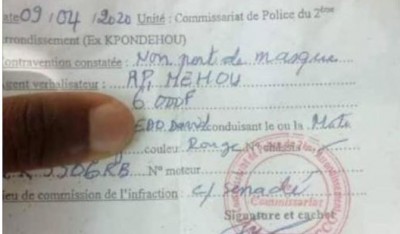 ate 09/04/2020 Unité : Commissariat de Police du 2ème
rrondissement (Ex KPONDEHOU)
ontravention constatée : Non port de masque
gent verbalisateur : AP, MEHOU
6 000F
conduisant le ou la Moto
couleur Rouge N°
N° moteur
ieu de commission de l'infraction c/ Sènadé
Commissariat
Signature et cachet